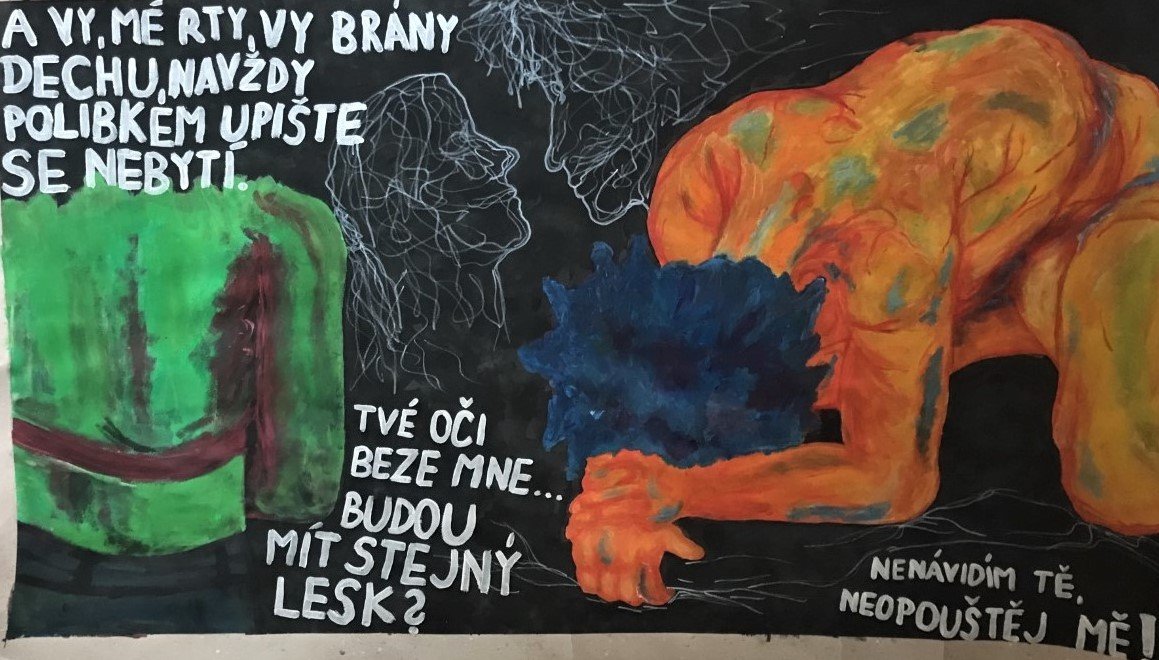 A VY, MÉ RTY, VY BRÁNY
DECHU, NAVŽDY
POLIBKEM UPIŠTE
SE NEBYTÍ.
TVÉ OČI
BEZE MNE...
BUDOU
MÍT STEJNÝ
LESK?
NENÁVIDÍM TĚ,
NEOPOUŠTĚJ MĚ!